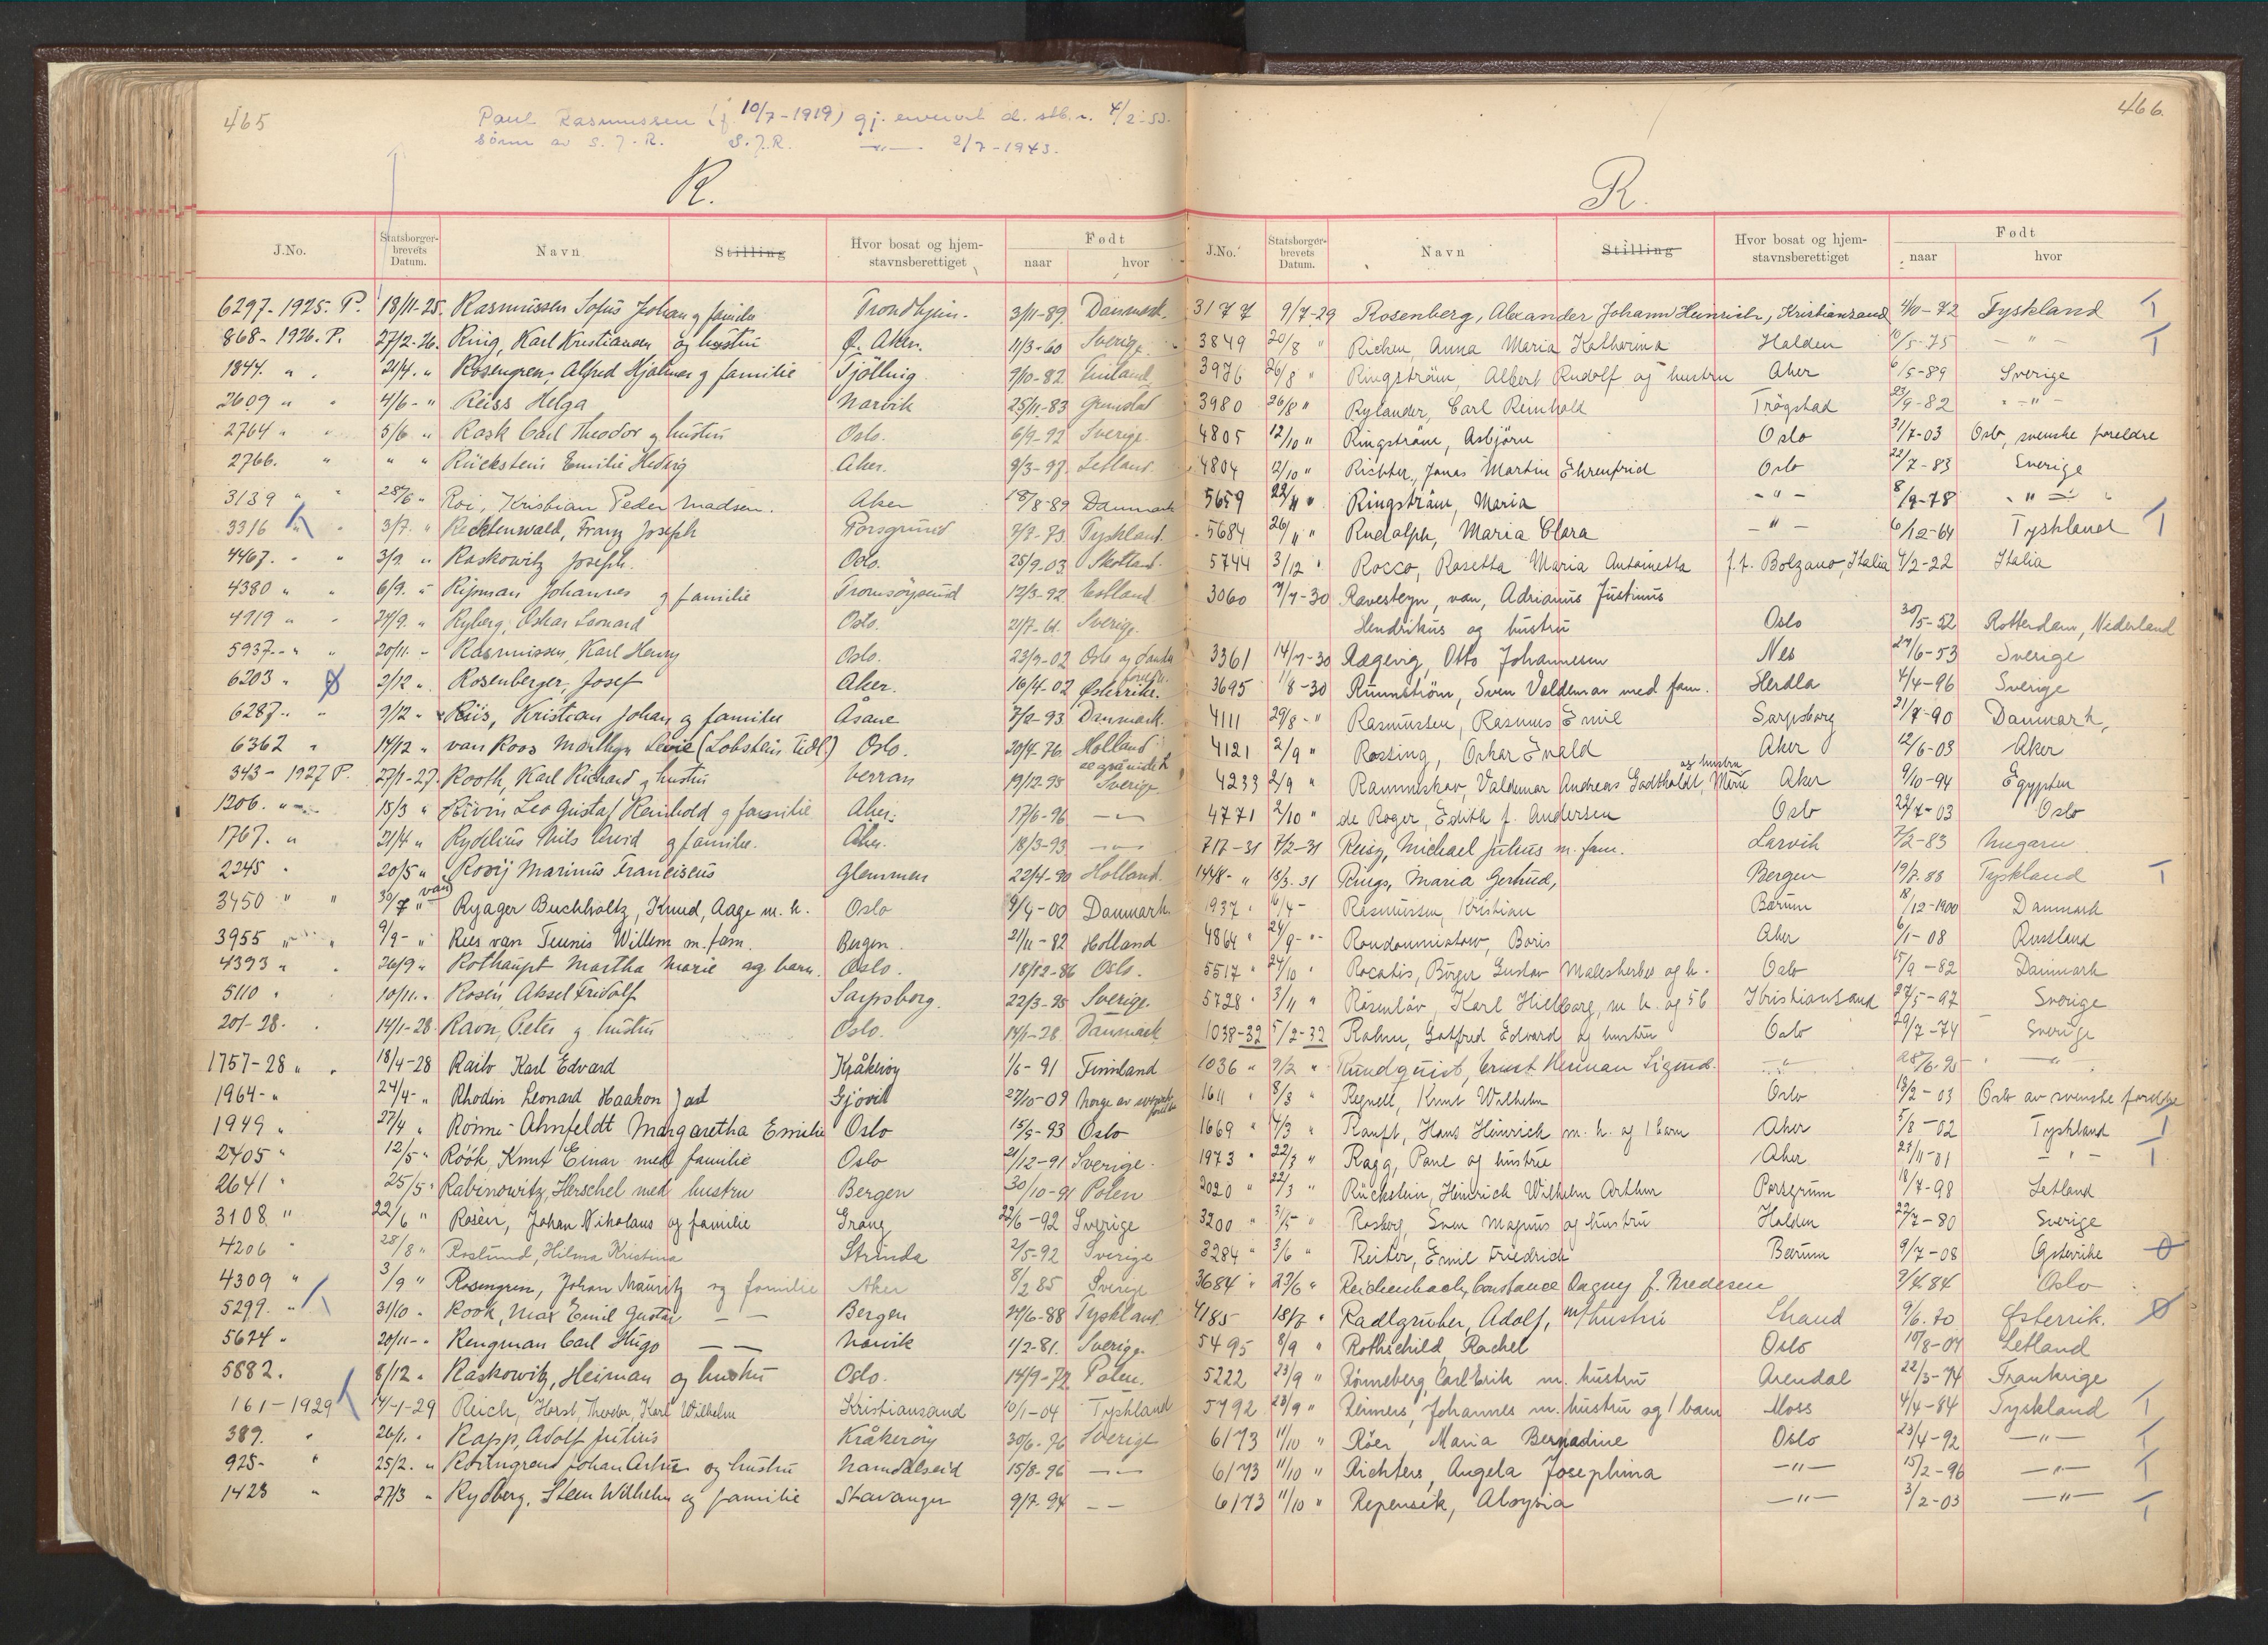 465
Paul Rasmussen (f. 10/7-1919) gj. ervervet d. stb. r. 4/2-53.
Sönn av S. J. R. S. J. R. —"— 2/7-1943.
R.
J.No. Statsborger-brevets Datum. Navn Stilling Hvor bosat og hjem-stavnsberettiget Født naar hvor
6297-1925. P. 18/11-25. Rasmussen Sofus Johan og familie Trondhjem. 3/11-89. Danmark.
868-1926. P. 27/2-26. Ring, Karl Kristiansen og hustru Ø. Aker. 11/3-60 Sverige.
1844. " . 21/4. " Rosengren, Alfred Hjalmar og familie Tjölling 9/10-82 Finland
2609 " " 4/6- " Reiss Helga Narvik 25/11-83 Grimstad
2764 " " 5/6 " Rask Carl Theodor og hustru Oslo. 6/9-92 Sverige.
2766. " " " Rückstein Emilie Hedvig Aker. 9/3-97. Letland.
3139 " " 28/6 " Roi, Kristian Peder Madsen. Aker 18/8-89 Danmark
3316 " " 3/7. " Recktenwald, Franz Joseph Porsgrund 7/8-73 Tyskland.
4467. " " 3/9. " Raskowitz Joseph. Oslo. 25/9-03 Skotland.
4380 " " 6/9. " Ripman Johannes og familie Tromsöysund 12/3-92 Estland
4919 " " 24/9. " Ryberg, Oskar Leonard Oslo. 21/7-61. Sverige.
5937- " " 20/11. " Rasmussen, Karl Henry Oslo. 23/3-02 Oslo av danske foreldre.
6203 " " 2/12 " Rosenberger, Josef Aker. 16/4-02 Østerrike.
6287. " 9/12 " Riis, Kristian Johan og familie Åsane 7/2-93 Danmark.
6362 " 14/12 " van Roos Matthyn Levie (Lobstein tidl.) Oslo. 20/4-76. Holland
343-1927 P. 27/1-27. Rooth, Karl Richard og hustru Verran 19/12-95 Sverige
1206. " 15/3 " Rivin Leo Gustaf Reinhold og familie Aker. 17/6-96 —"—
1767. " 21/4 " Rydelius Nils Arvid og familie. Aker. 18/3-93 —"—
2245 " 20/5 " van Rooij Marinus Franciscus Glemmen 22/4-90 Holland.
3450 " " 30/7 " Ryager Buchholtz, Knud, Aage m. h. Oslo 9/4-00 Danmark.
3955 " " 9/9- " Rees van Teunis Willem m. fam. Bergen. 21/11-82 Holland
4393 " . 26/9 " Rothaupt Martha Marie og barn. Oslo. 18/12-86 Oslo.
5110 " . 10/11. " Rosén Aksel Fridolf Sarpsborg. 22/3-95 Sverige.
201-28. . 14/1-28. Ravn, Peter og hustru Oslo. 14/1-28. Danmark
1757-28 " . 18/4-28 Raito Karl Edvard Kråkeröy 1/6-91 Finnland
1964- " 24/4- " Rhodin Leonard Haakon Gjövik 27/10-09 Norge av svenske foreldre
1949 " 27/4 " Rönne-Ahnfeldt Margaretha Emilie Oslo 15/9-93 Oslo
2405 " 12/5 " Röök, Knut Einar med familie Oslo 21/12-91 Sverige.
2641 " 25/5 " Rabinowitz, Herschel med hustru Bergen 30/10-91 Polen
3108 " 22/6 " Roséen, Johan Nikolaus og familie Grong 22/6-92 Sverige
4206 " 28/8 " Roslund, Hilma Kristina Strinda 2/5-92 Sverige
4309 " 3/9 " Rosengren, Johan Mauritz og familie Aker 8/2 85 Sverige
5299. " 31/10 " Rook, Max Emil Gustav — — Bergen 24/6-88 Tyskland
5624 " 20/11- " Rengman Carl Hugo — — Narvik 1/2-81. Sverige.
5882. 8/12 " Raskowitz, Heiman og hustru Oslo. 14/9-72 Polen.
161-1929 14/-1-29 Reich, Horst, Theodor, Karl Wilhelm Kristiansand 10/1-04 Tyskland
389. " 26/1. " Rapp, Adolf Julius Kråkeröy 30/6-76 Sverige
925- " 25/2. " Rosengren Johan Arthur og hustru Namdalseid 15/8-96 —"—
1423 " 27/3 " Rydberg, Steen Wilhelm og familie Stavanger 9/7-94 — —
466.
R.
J.No. Statsborger-brevets Datum. Navn Stilling Hvor bosat og hjem-stavnsberettiget Født naar hvor
3177 9/7-29 Rosenberg, Alexander Johann Heinrich, Kristiansand 4/10-72 Tyskland T
3849 20/8 " Richen, Anna Maria Katherina Halden 10/5-75 —"— T
3976 26/8 " Ringström, Albert Rudolf og hustru Aker 6/5-89 Sverige
3980 26/8 " Rylander, Carl Reinhold Trögstad 23/9-82 —"—
4805 12/10 " Ringström, Asbjörn Oslo 31/7-03 Oslo, svenske foreldre
4804 12/10 " Richter, Jonas Martin Ehrenfrid Oslo 22/7-83 Sverige
5659 22/11 " Ringström, Maria —"— 8/9-78 —"—
5684 26/11 " Rudolph, Maria Clara —"— 6/12-64 Tyskland T
5744 3/12 " Rocco, Rosetta Maria Antoinetta f.t. Bolzano, Italia 4/2-22 Italia
3060 7/7-30 Ravesteyn, van, Adrianus Justinus
Hendrikus og hustru Oslo 30/5-52 Rotterdam, Nederland
3361 14/7-30 Rægevig, Otto Johannesen Nes 27/6-53 Sverige
3695 1/8-30 Rünnström, Sven Valdemar med fam. Herdla 4/4-96 Sverige
4111 29/8- " Rasmussen, Rasmus Emil Sarpsborg 21/7-90 Danmark,
4121 2/9 " Rossing, Oskar Evald Aker 12/6-03 Aker
4233 2/9 " Rammskov, Valdemar Andreas Godtholdt, Marie og hustru Aker 9/10-94 Egypten
4771 2/10 " de Roger, Edith f. Andersen Oslo 22/7-03 Oslo
717-31 7/2-31 Reisz, Michael Julius m. fam. Larvik 7/2-83 Ungarn
1448- " 18/3. 31 Rings, Maria Gertrud, Bergen 19/7-88 Tyskland T
1937 " 16/4 - Rasmussen, Kristian Bærum 18/12-1900 Danmark
4864 " 24/9- " Aker 6/1-08 Russland
5517 " 24/10 " Rocatis, Börger Gustav Malesherbes og h. Oslo 15/9-82 Danmark
5728 " 3/11 " Rösenlöv, Karl Hielborg, m. h. og 5 b Kristiansand 27/5-97 Sverige
1038-32 5/2-32 Rahm, Gotfred Edvard og hustru Oslo 29/7-74 Sverige
1036 " 9/2 " Rundquist, Ernst Herman Sigmd. —"— 28/6-95 —"—
1611 " 8/3 " Regnell, Knut Wilhelm Oslo 13/2-03 Oslo av svenske foreldre
1669 " 14/3 " Ranft, Hans Heinrich m. h. og 1 barn Aker 5/8-02 Tyskland T
1973 " 22/3 " Ragg, Paul og hustru Aker 25/11-01 —"— T
2020 " 22/3 " Rückstein, Heinrich Wilhelm Arthur Porsgrunn 18/7-98 Letland
3200 " 31/5 " Rosberg, Sven Magnus og hustru Halden 22/7-80 Sverige
3284 " 3/6 " Reiter, Emil Friedrich Bærum 9/7-08 Østerrike
3684 " 23/6 " Reichenbach, Constance Dagny f. 9/4 84 Oslo
4185 18/7 " Radlgruber, Adolf, m/hustru Strand 9/6. 70 Østerrik.
5495 8/9 " Rothschild, Rachel Oslo 10/8-04 Letland
5222 23/9 " Rönneberg, Carl Erik m. hustru Arendal 22/3-74 Frankrige
5792 28/9 " Reimers, Johannes m. hustru og 1 barn Moss 4/4-84 Tyskland T
6173 11/10 " Röer, Maria Bernadine Oslo 23/4-92 —"— T
6173 11/10 " Richters, Angela Josephina —"— 15/2-96 —"— T
6173 11/10 " Repensek, Aloysia —"— 3/2-03 —"— T